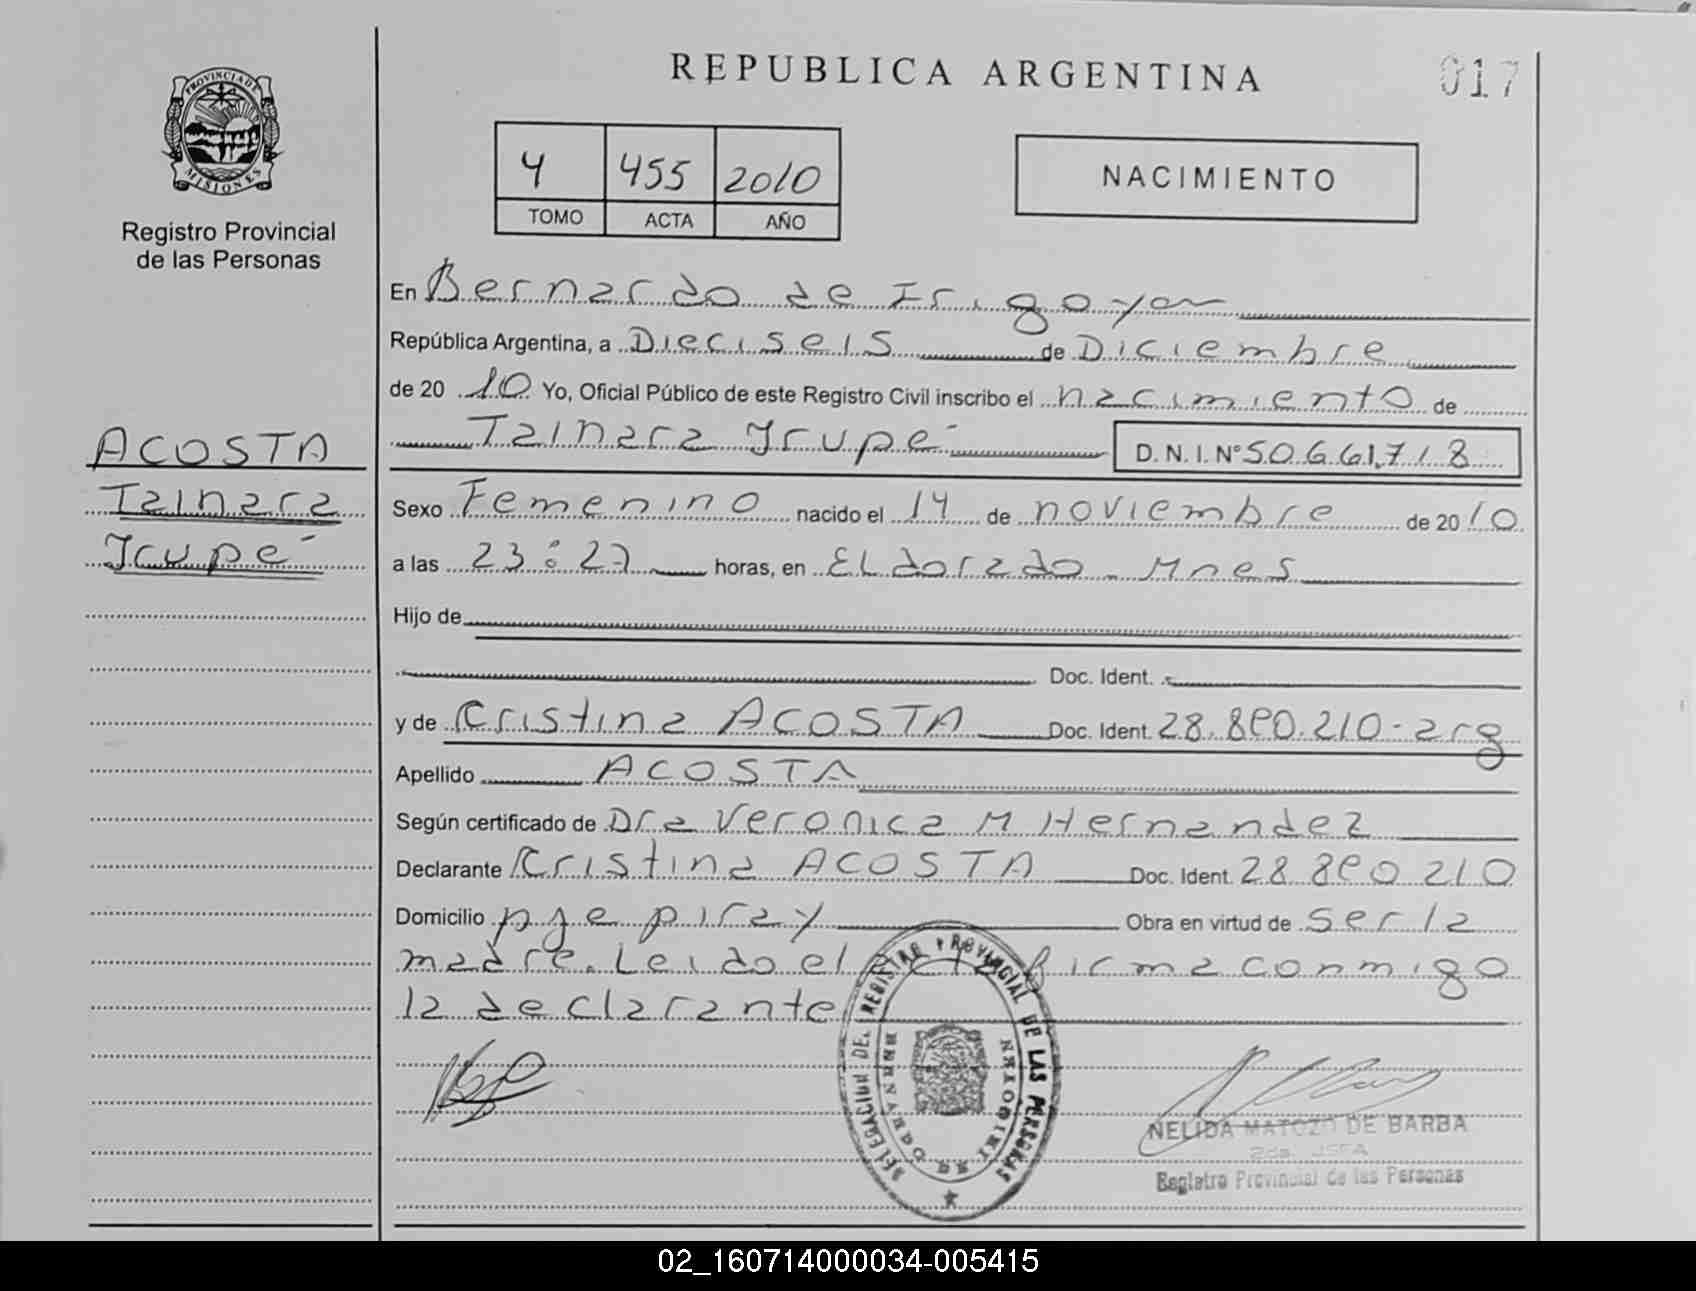 REPUBLICA ARGENTINA
017
PROVINCIA DE MISIONES
Registro Provincial
de las Personas
4 455 2010
TOMO ACTA AÑO
NACIMIENTO
En Bernardo de Irigoyen
República Argentina, a Dieciseis de Diciembre
de 20 10 Yo, Oficial Público de este Registro Civil inscribo el nacimiento de
Tainara Yrupé D. N. I. Nº 50.661.718
ACOSTA
Tainara
Yrupé
Sexo Femenino nacido el 14 de noviembre de 20 10
a las 23:27 horas, en Eldorado - Mnes
Hijo de
Doc. Ident.
y de Cristina ACOSTA Doc. Ident. 28.890.210-arg
Apellido ACOSTA
Según certificado de Dra Veronica M Hernandez
Declarante Cristina ACOSTA Doc. Ident. 28 890 210
Domicilio pje piray Obra en virtud de ser la
madre. Leido el acta firma conmigo
la declarante
DELEGACION DEL REGISTRO PROVINCIAL DE LAS PERSONAS
BERNARDO DE IRIGOYEN
NELIDA MATOZO DE BARBA
2da. JEFA
Registro Provincial de las Personas
02_160714000034-005415